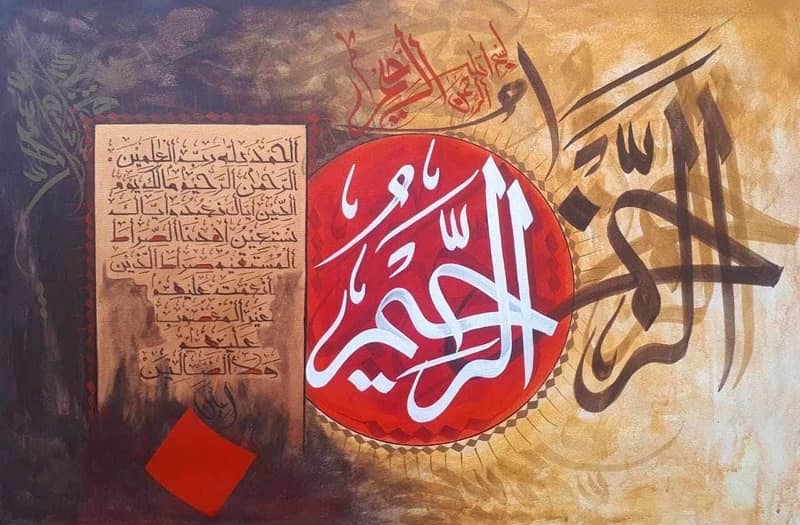 بسم الله الرحمن الرحيم
الرحمن
الرحيم
الحمد لله رب العلمين
الرحمن الرحيم مالك يوم
الدين اياك نعبد واياك
نستعين اهدنا الصراط
المستقيم صراط الذين
انعمت عليهم
غير المغضوب
عليهم
ولا الضالين